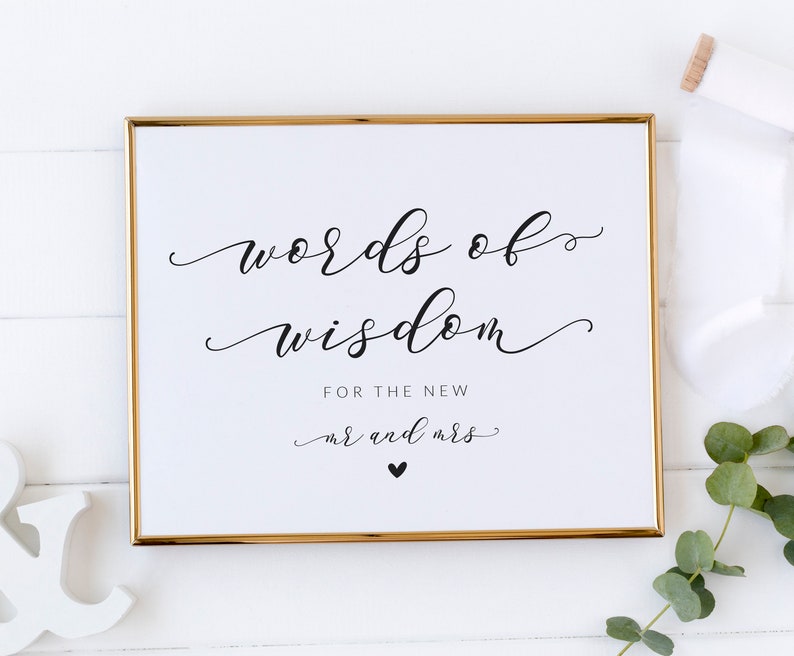 words of
wisdom
FOR THE NEW
mr and mrs
&